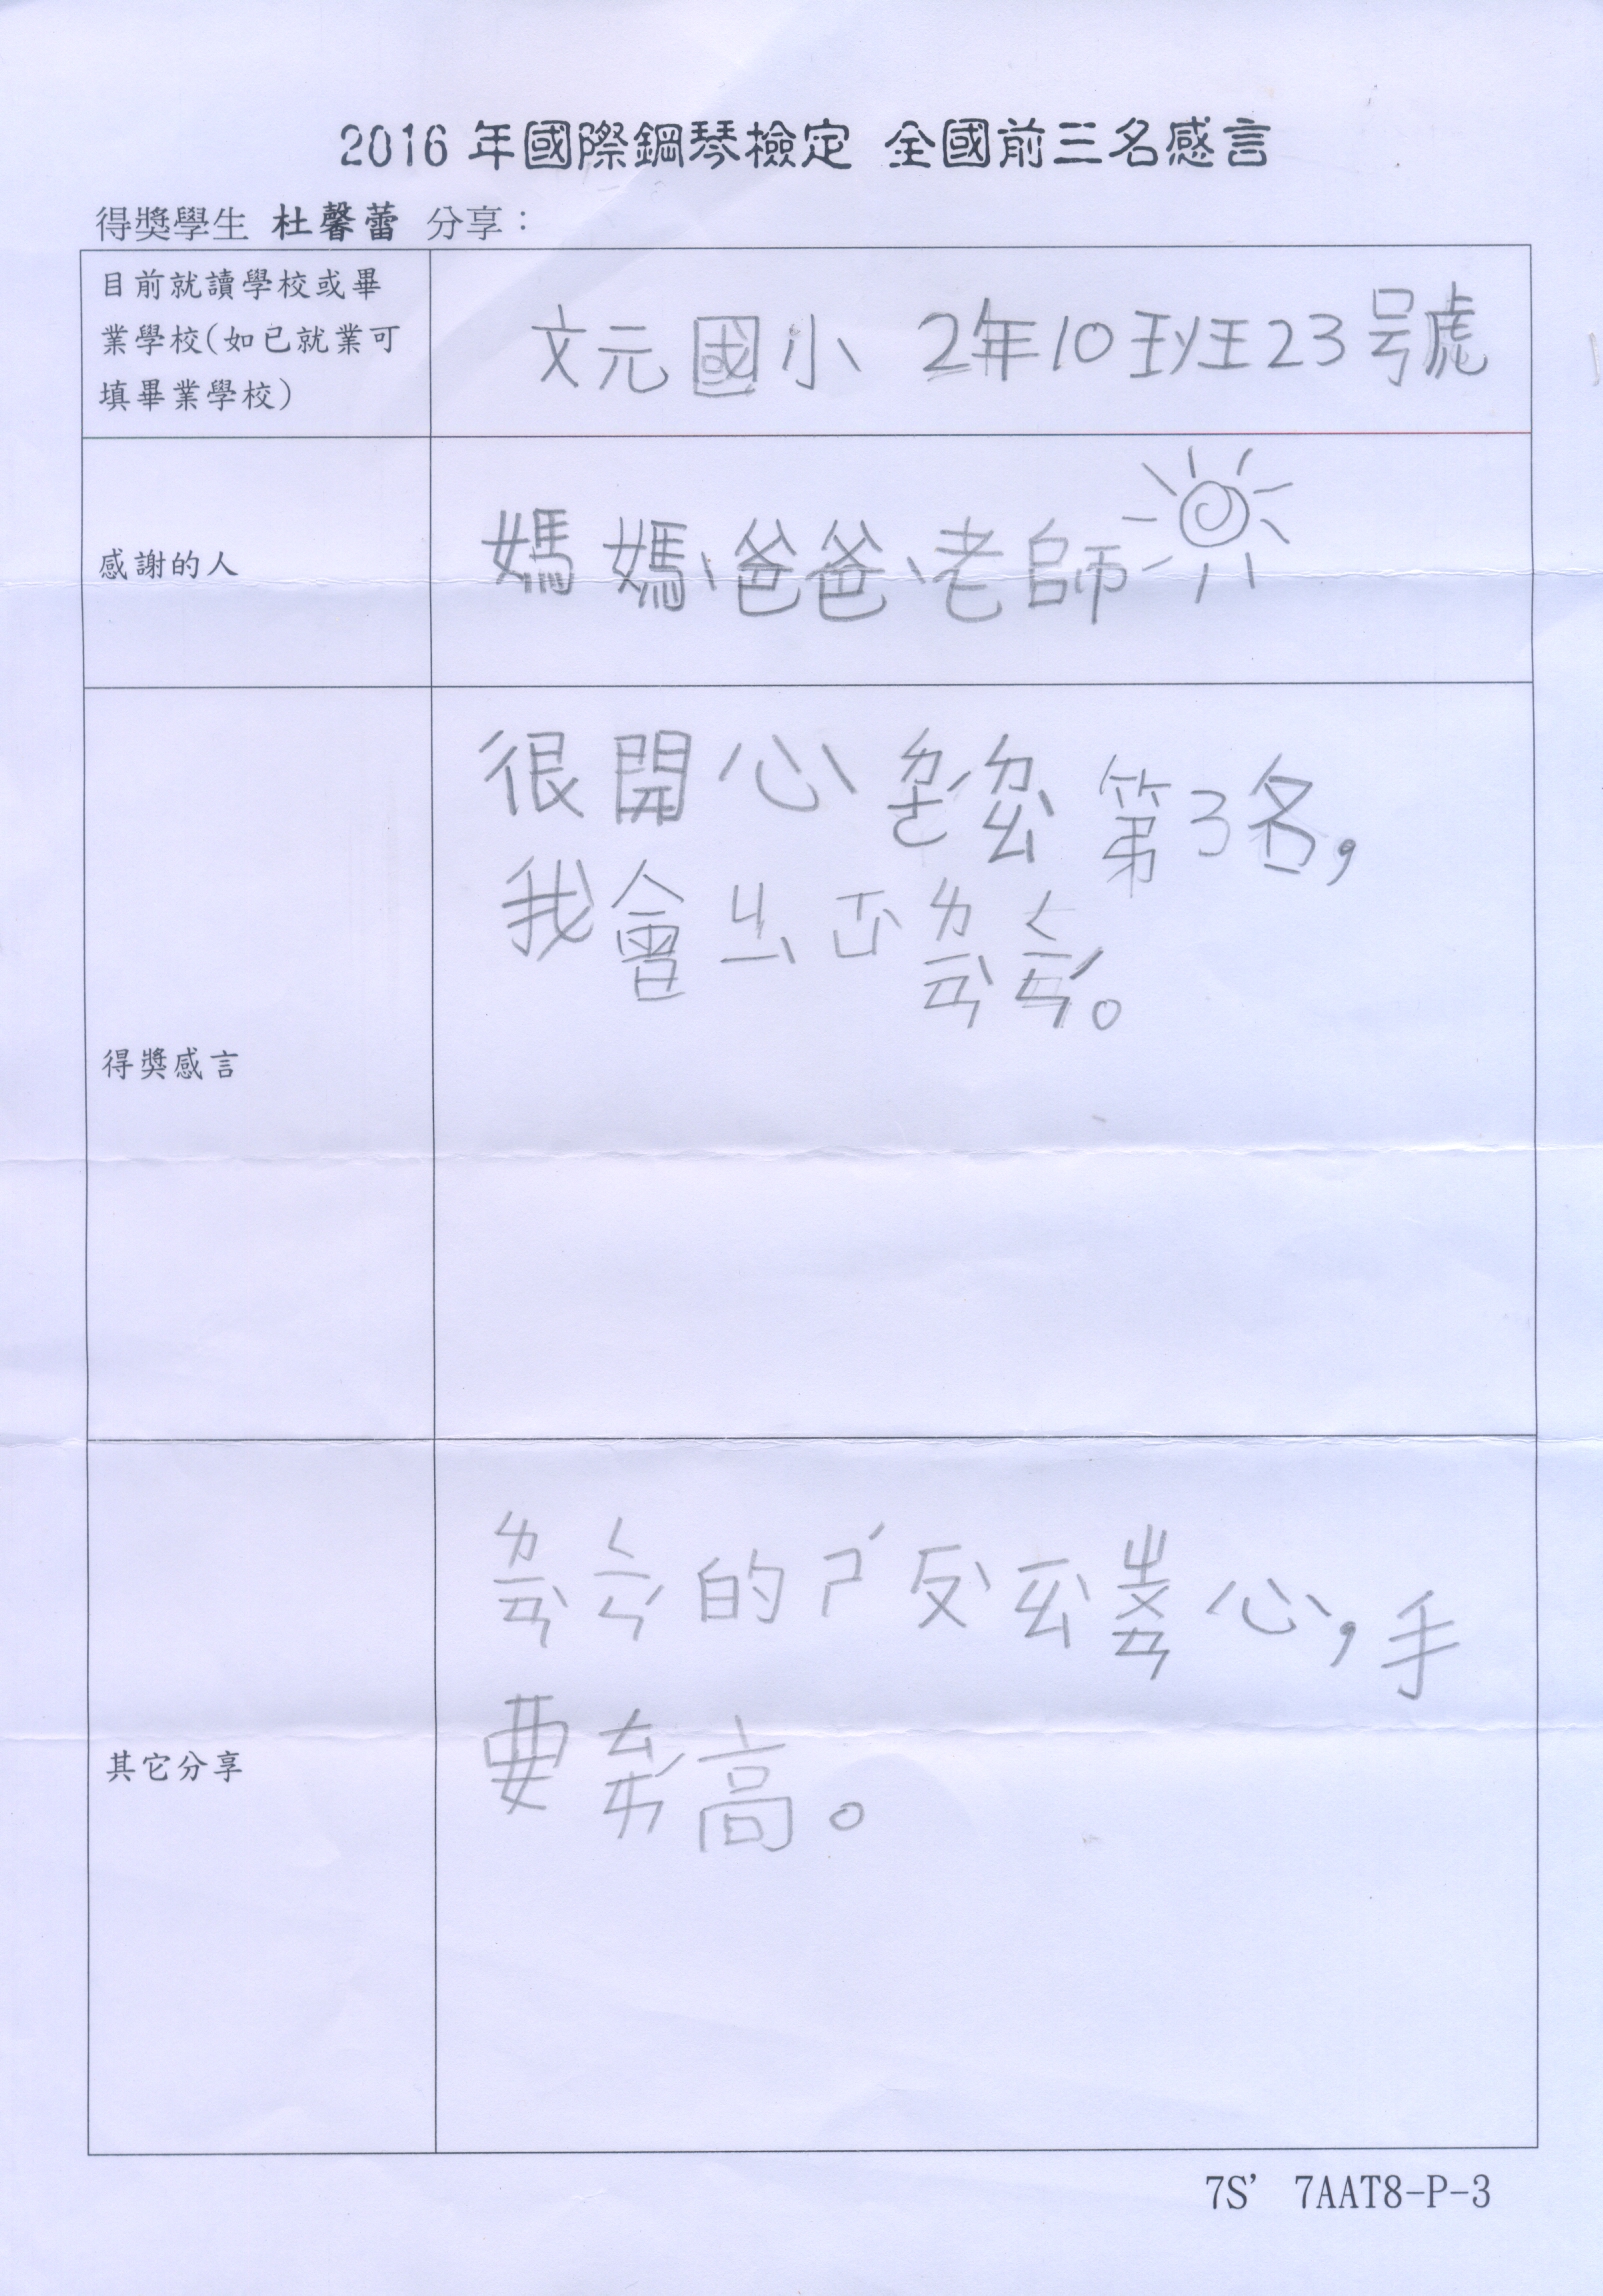 2016 年國際鋼琴檢定 全國前三名感言
得獎學生 杜馨蕾 分享：
目前就讀學校或畢
業學校(如已就業可
填畢業學校)
文元國小 2年10班23號
感謝的人
媽媽、爸爸、老師
得獎感言
很開心ㄉㄜˊㄉㄠˋ第3名，
我會ㄐㄧˋㄒㄩˋㄌㄧㄢˋㄑㄧㄣˊ。
其它分享
ㄌㄧㄢˋㄑㄧㄣˊ的ㄕˊㄏㄡˋㄧㄠˋㄓㄨㄢ心，手
要ㄊㄞˊ高。
7S’ 7AAT8-P-3